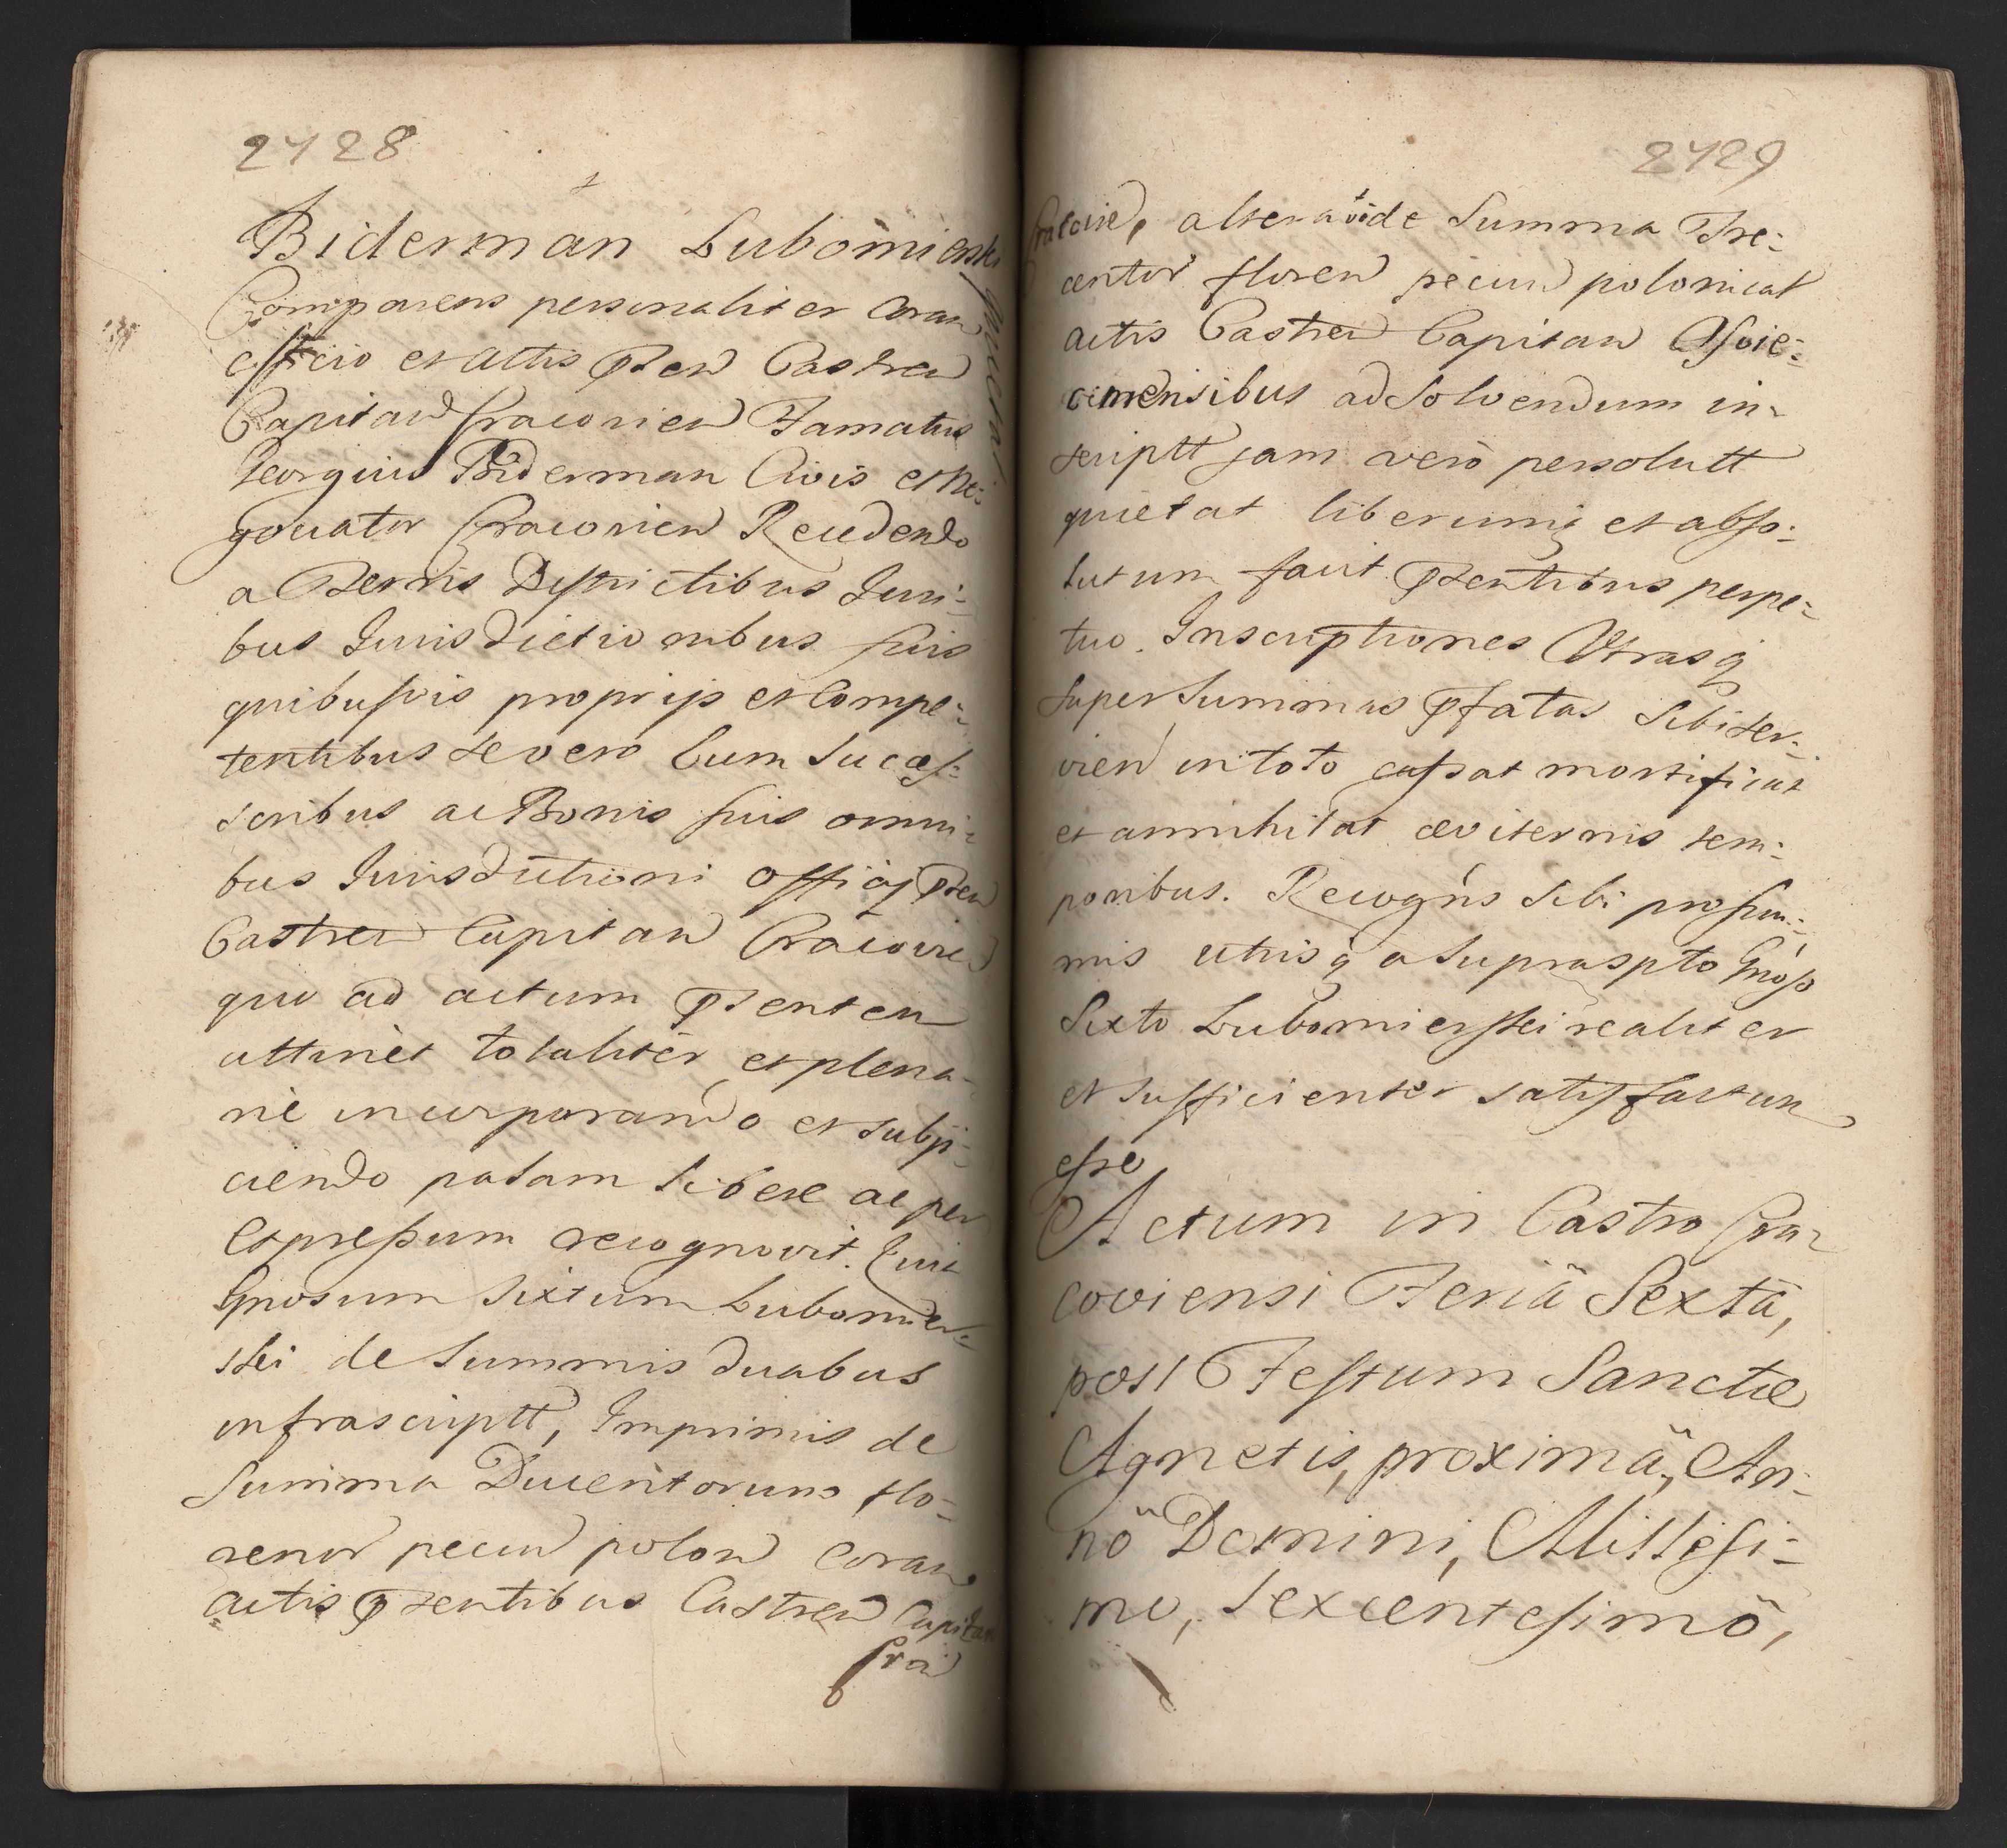 2428
Biderman Lubomierski
quietat
Comparens personaliter coram
officio et actis pnten Castren
Capitan Cracovien Famatus
Georgius Biderman Civis et ne-
gotiator Cracovien Recedendo
a Terris Districtibus Juri-
bus Jurisdictionibus suis
quibusvis proprijs et Compe-
tentibus se vero cum succes-
soribus ac Bonis suis omni-
bus Jurisdictioni officij pnten
Castren Capitan Cracovien
quo ad actum pntentem
attinet totaliter et plena-
rie incorporando et subij-
ciendo palam libere ac per
expressum recognovit. Quia
Gnosum Sixtum Lubomier-
ski de summis duabus
infrascriptt, Imprimis de
Summa Ducentorum flo-
renor pecun polon coram
actis pntentibus Castren Capitan
Crac
2429
Cracovien, altera vide Summa Tre-
centor floren pecun polonical
actis Castren Capitan Osvie-
cimensibus ad solvendum in-
scriptt jam vero persolutt
quietat liberumq et abso-
lutum facit pntentibus perpe-
tuo. Inscriptiones Utrasq
super summas pfatas sibi ser-
vien in toto cassat mortificat
et annihilat aeviternis tem-
poribus. Recogns sibi pro sum-
mis utrisq a supraspto Gnoso
Sixto Lubomierski realiter
et sufficienter satisfactum
esse
Actum in Castro Cra-
coviensi Feriâ Sextâ,
post Festum Sanctæ
Agnetis, proximâ, An-
nô Domini, Millesi-
mo, Sexcentesimô,